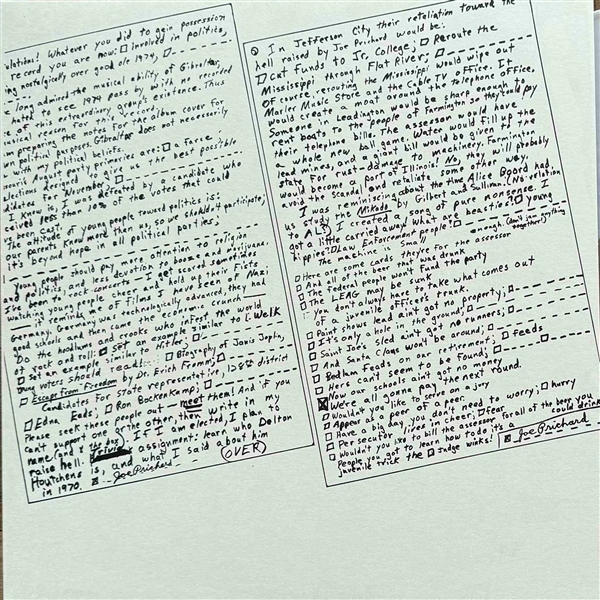 ulations! Whatever you did to gain possession
record you are now: ☐ involved in politics,
ing nostalgically over good ole 1974, ☐
long admired the musical ability of Gibraltar,
hated to see 1974 pass by with no recorded
ce of this extraordinary, group's existence. Thus
usical reason for this record.
m preparing the notes for the album cover for
wn political purposes. Gibraltar does not necessarily
with my political beliefs.
ssouri August party primaries are: ☐ a farce;
elections designed to give us the best possible
didates for November; ☐
I Know, as I was defeated by a candidate who
ceived less than 10% of the votes that could
ve been cast.
The attitude of young people toward politics is:
our parents know more than us, so we shouldn't participate;
it's beyond hope in all political parties;
Young people should pay more attention to religion
and politics and less devotion to booze and marijuana.
I've been to rock concerts. I get scared sometimes
watching young people cheer and hold up their Fists
it reminds me of films I have seen of Nazi
Germany. Germany was technologically advanced, they had
good schools and then came the economic crunch
Do the hoodlums and crooks who infest the world
of rock and roll: ☐ set an example similar to L. Welk
☐ set an example similar to Hitler; ☐
Young voters should read: ☐ Biography of Janis Joplin,
☐ Escape from Freedom by Dr. Erich Fromm; ☐
Candidates for state representative, 128th district
☐ Edna Eads; ☐ Ron Bockenkamp; ☐
Please seek these people out — meet them! And if you
can't support one or the other then write in my
name (and ☒ the day). If I am elected, I plan to
raise hell. Trivia assignment: learn who Delton
Houtchens is, and what I said about him
in 1970. ☒ Joe Prichard (OVER)
In Jefferson City their retaliation toward the
hell raised by Joe Prichard would be:
☐ cut funds to Jr. College; ☐ Reroute the
Mississippi through Flat River; ☐
Of course, rerouting the Mississippi would wipe out
Marler Music Store and the Cable TV office. It
would create a moat around the telephone office.
Someone in Leadington would be sharp enough to
rent boats to the people of Farmington so they could pay
their telephone bills. The assessor would have
a whole new ball game. Water would fill up the
lead mines, and a giant bill would be given to the
state for rust-damage to machinery. Farmington
would become a part of Illinois! No, they will probably
avoid the scandal and retaliate some other way.
I was reminiscing about the time Alice Board had
us study the Mikado by Gilbert and Sullivan. (No relation
to AL?) I created a song of pure nonsense. I
got a little carried away. What are beasties? ☐ young
hippies? ☐ Law Enforcement people? ☐ enough. (don't ☒ anything
the machine is small together!)
☐ Here are some cards they're for the assessor
☐ And all of the beer that was drank
☐ The federal people won't fund the party
☐ The LEAG may be sunk
☐ You don't always have to take what comes out
of a juvenile officer's trunk.
☐ Paint shows lead ain't got no property; ☐
☐ It's only a hole in the ground;
☐ Saint Joe's sled ain't got no runners; ☐
☐ And Santa Claus won't be around; ☐
☐ Bedham Feeds on our retirement; ☐ feeds
☐ Here can't seem to be found; ☐
☐ Now our schools ain't got no money;
☒ We're all gonna pay the next round.
☐ Wouldn't you like to serve on a jury
☐ Appear as a peer of a peer.
☐ Have a big day, you don't need to worry; ☐ hurry
☐ Persecutor lives in cheer; ☐ fear
☐ Wouldn't you like to bill the assessor for all of the beer you
could drink
☐ People you got to learn how to do it's a
juvenile trick the ☐ Judge winks! ☒ Joe Prichard